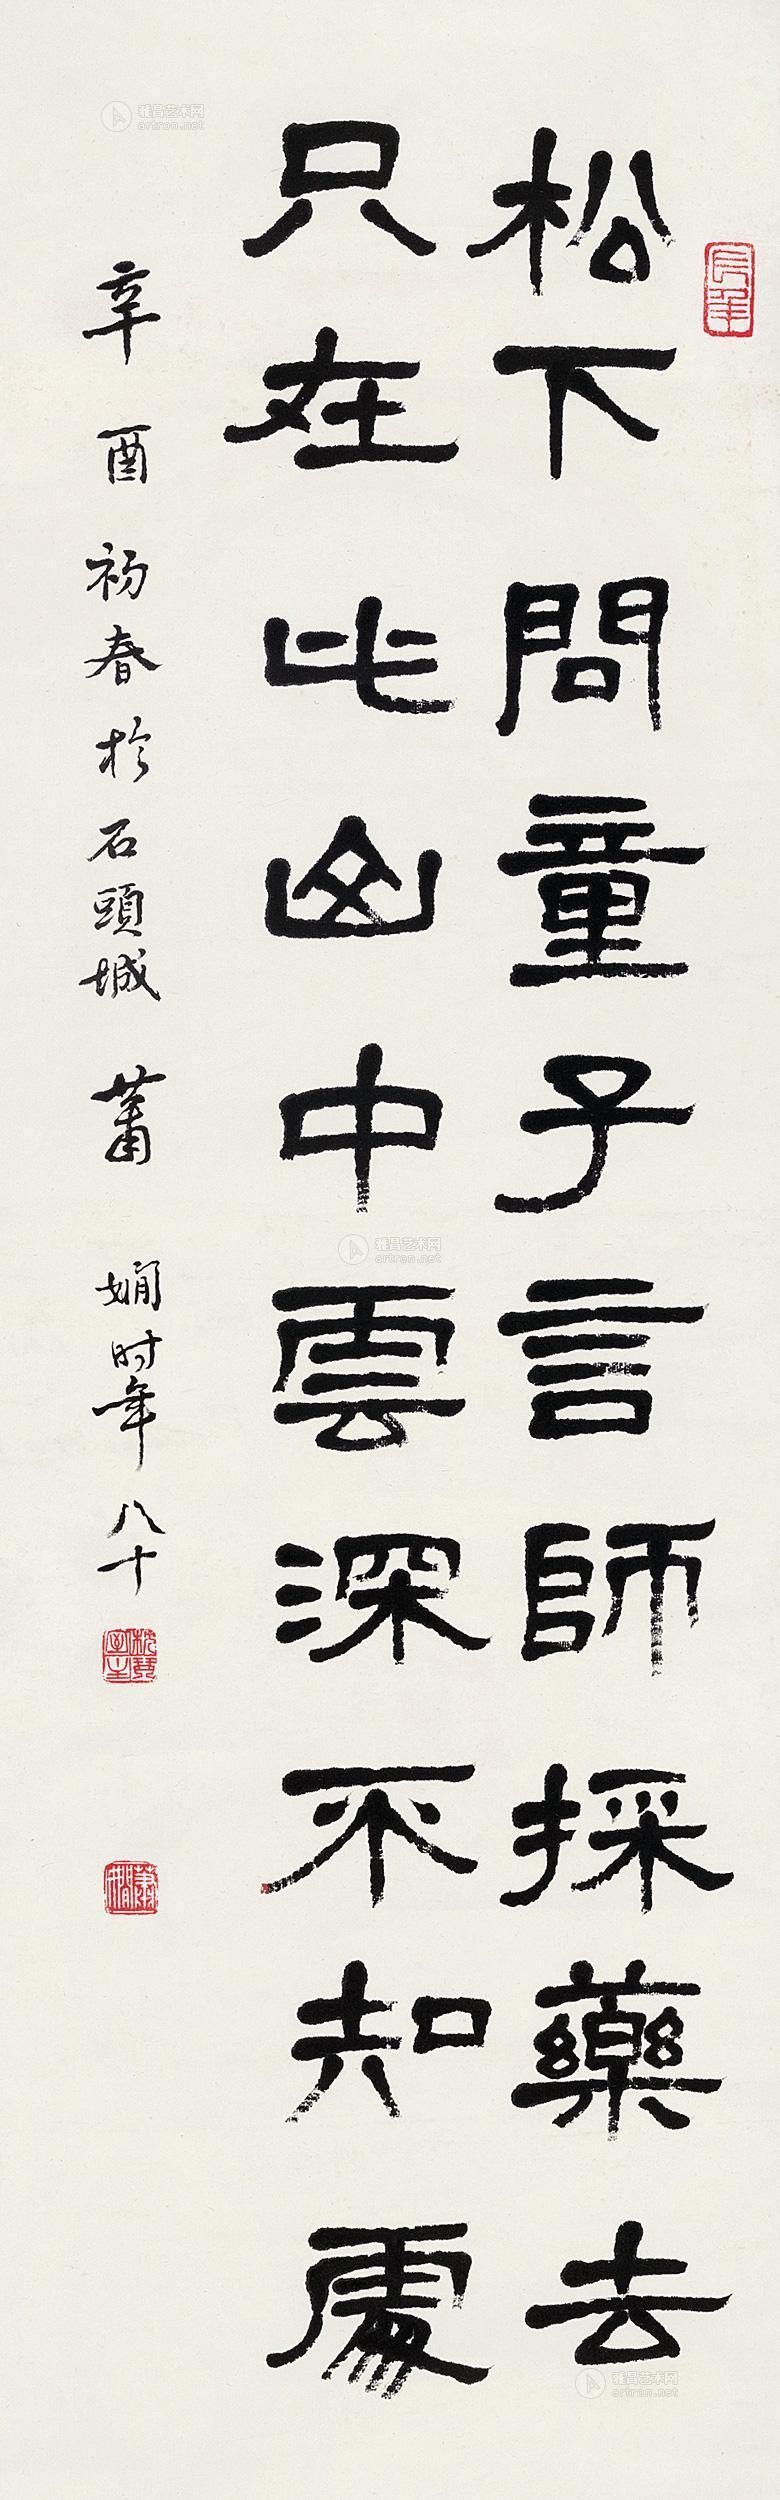 松下問童子言師採藥去
只在此山中雲深不知處
辛酉初春於石頭城 蕭嫻时年八十
長年
蕭嫻
雅昌艺术网
artron.net
雅昌艺术网
artron.net
雅昌艺术网
artron.net